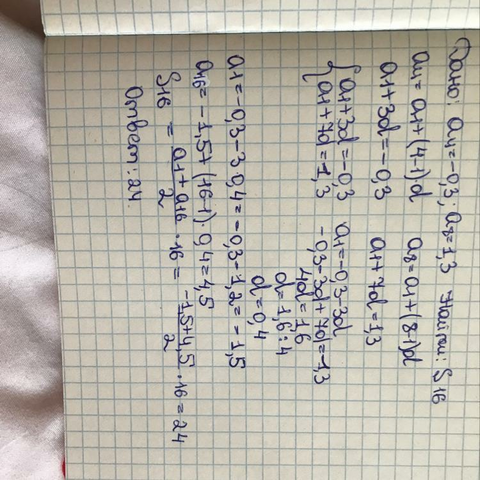 Дано: a₄=-0,3; a₈=1,3 Найти: S16
a₄=a₁+(4-1)d a₈=a₁+(8-1)d
a₁+3d=-0,3 a₁+7d=1,3
{a₁+3d=-0,3 a₁=-0,3-3d
{a₁+7d=1,3 -0,3-3d+7d=1,3
4d=1,6
d=1,6:4
d=0,4
a₁=-0,3-3·0,4=-0,3-1,2=-1,5
a₁₆=-1,5+(16-1)·0,4=4,5
S16 = (a₁+a₁₆)/2 ·16 = (-1,5+4,5)/2 ·16=24
Ответ: 24.